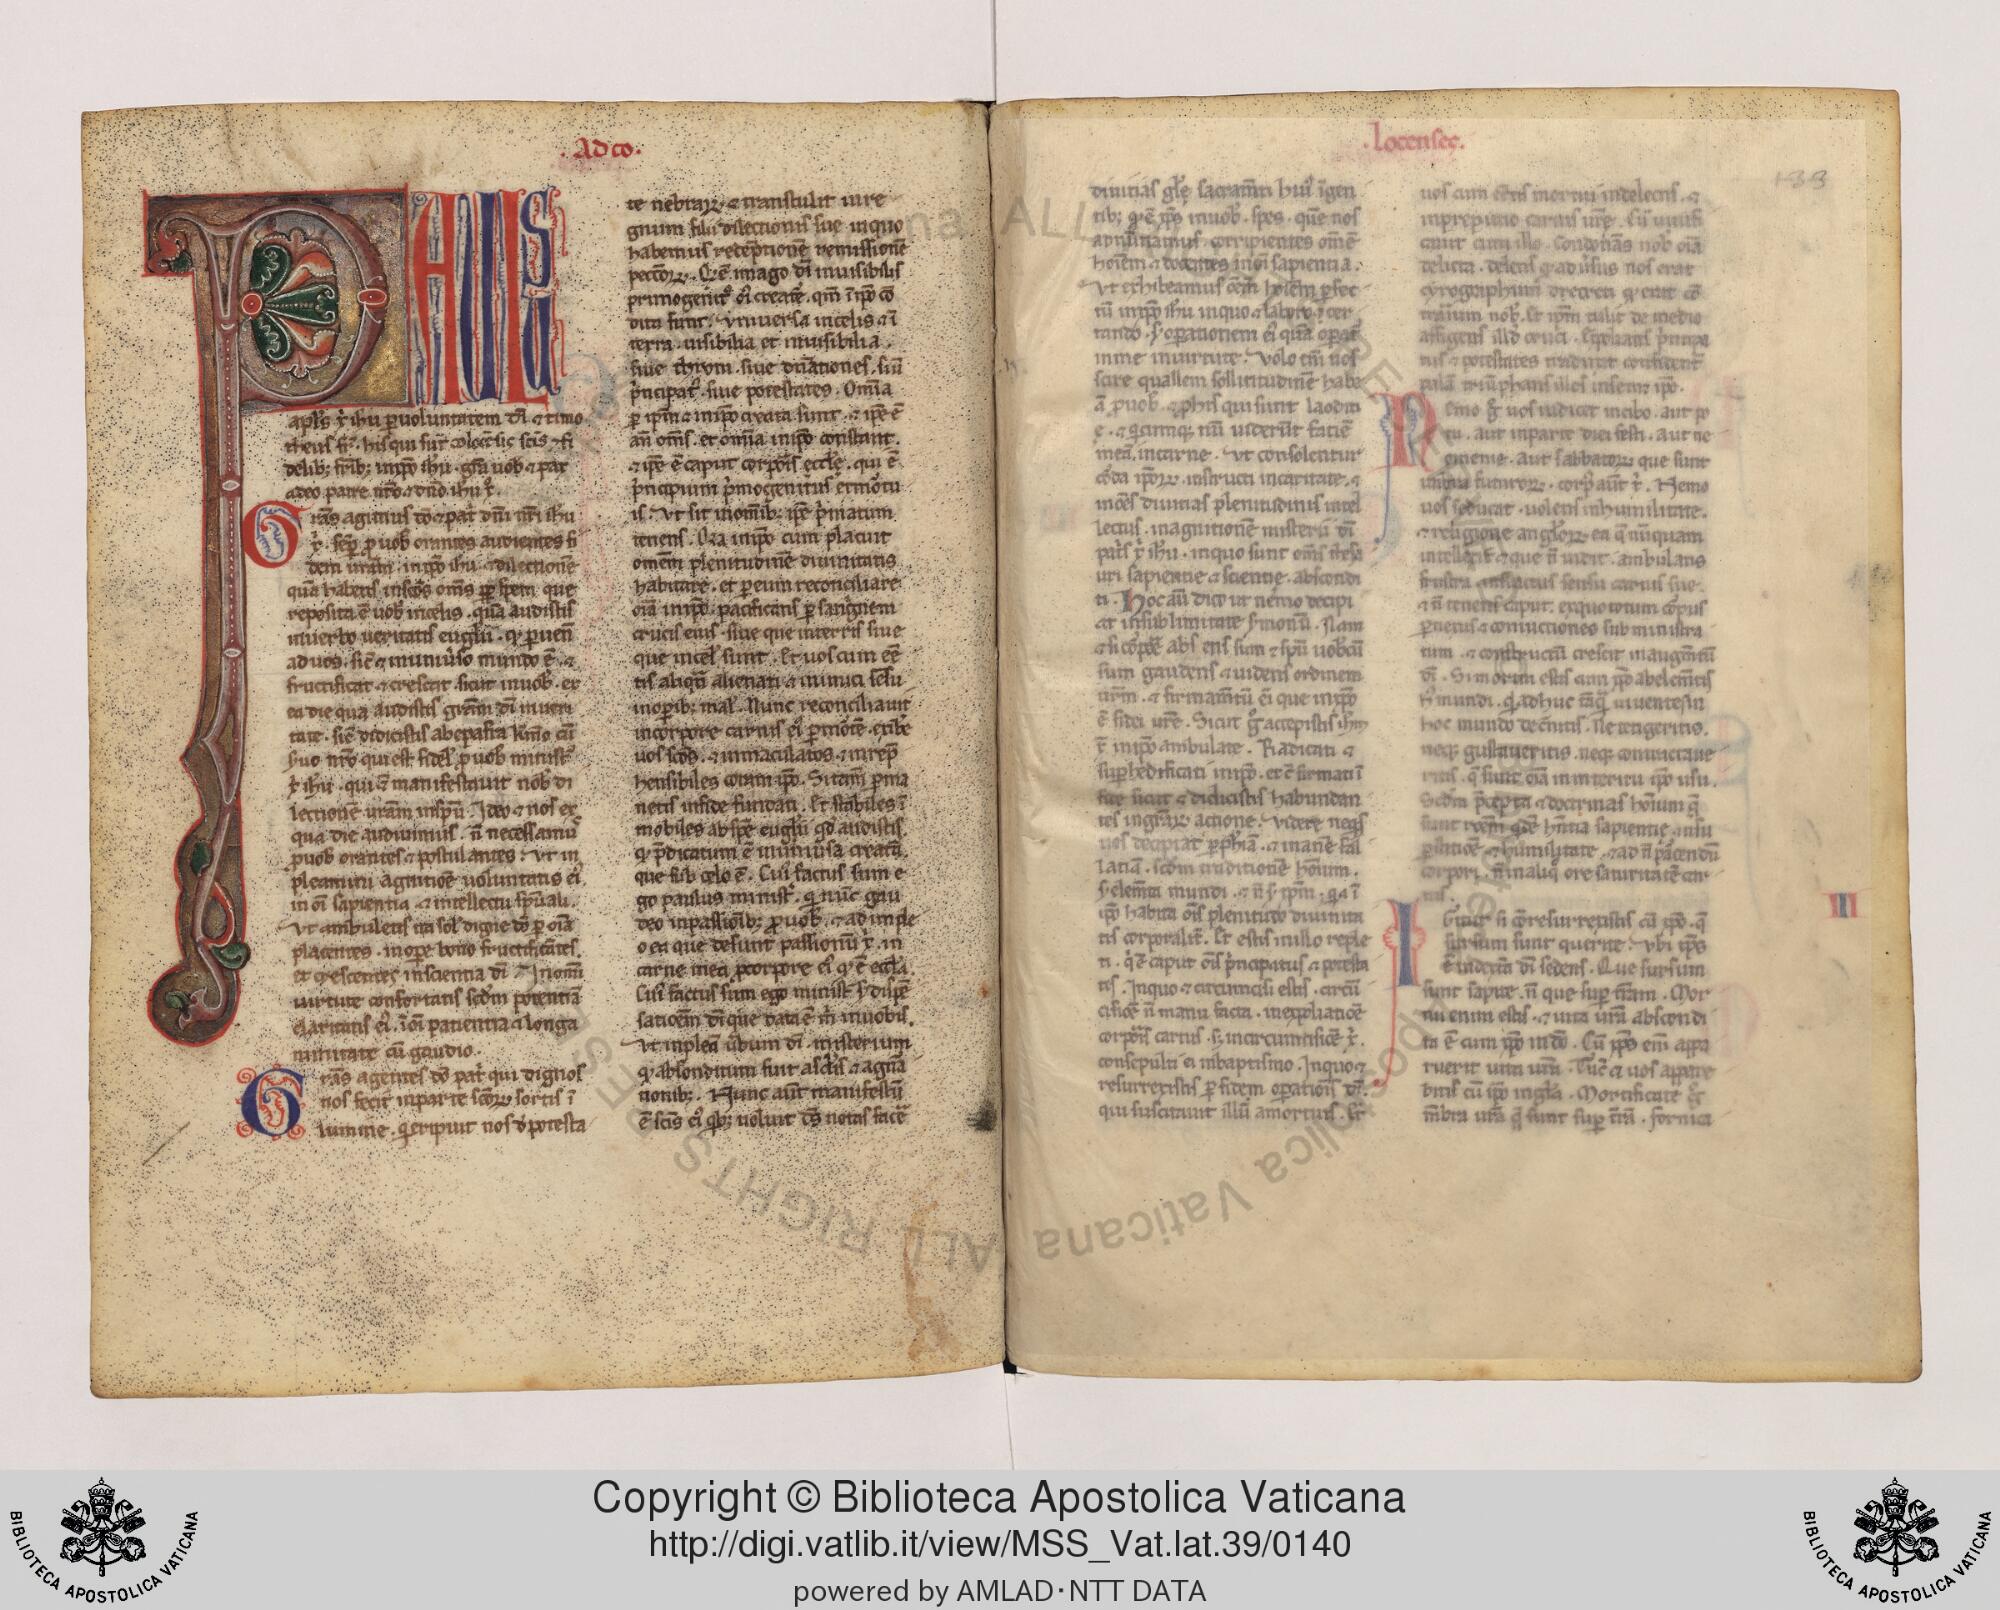 ·Ad co·
PAULUS
apl's x̓ ihu p uoluntatem dī ⁊ timo
theus fr̄. his qui sūt colocēsic̄ scīs ⁊ fi
delib; fr̄ib; in xp̄o ihu. grā uob̓ ⁊ pax
a deo patre nr̄o ⁊ dn̄o ihu x̓.
Grās agimus dō ⁊ pat̓ dn̄i nr̄i ihu
x̓. semp̄ p uob̓ orantes audientes fi
dem ur̄am. in xp̄o ihu ⁊ dilectionē
quā habetis in scōs om̄s pp̄ spem que
reposita ē uob̓ in celis. quā audistis
in uerbo ueritatis eug̅lii. q̓ puen̄
ad uos. sic̄ ⁊ in uniu̓so mundo ē. ⁊
fructificat ⁊ crescit. sicut in uob̓. ex
ea die qua audistis gram̄ dī in ueri
tate. sic̄ didicistis ab epafra k̄mo cū
s̓uo nr̄o qui est fidel̓ p uob̓ minist̓
x̓ ihu. qui ⁊ manifestauit nob̓ di
lectionē ur̄am in sp̄u. Ideo ⁊ nos ex
qua die audiuimus. n̄ necessam̓
p uob̓ orantes ⁊ postulantes. Ut in
pleamini agnitionē uoluntatis ei̓.
in oī sapientia ⁊ intellectu sp̄uali.
Ut ambuletis ita sol̓ digne dō p oīa
placentes. in opē bono fructificātes.
et crescentes in scientia dī. In om̄i
uirtute confortatis scd̄m potentiā
claritatis ei̓. ī oī patientia ⁊ longa
nimitate cū gaudio.
Grās agentes dō pat̓ qui dignos
nos fecit in parte scōꝝ sortis ī
lumine. q̓ eripuit nos d̓ potesta
te nebraꝝ ⁊ transtulit in re
gnum filii dilectionis sue in quo
habemus redēptionē remissionē
peccōꝝ. Q̓ ē imago dī inuisibilis
primogenit̓ oī creatē. qm̄ ī ip̄o cō
dita sunt. Uniuersa in celis ⁊ ī
terra. uisibilia et inuisibilia.
siue throni. siue dn̄ationes. siū
p̓ncipat̓. siue potestates. Omīa
p ip̄m ⁊ in ip̄o creata sunt. ⁊ ip̄e ē
an̄ om̄s. et omīa in ip̄o constant.
⁊ ip̄e ē caput corpōis ecclē. qui ē
p̓ncipium p̓mogenitus ex mōrtu
is. Ut sit in omīb; ip̄e p̓matum
tenens. Q̓a in ip̄o cum placuit
omem̄ plenitudinē diuinitatis
habitare. et p eum reconciliare
oīa in ip̄o. pacificans p sanguīem
crucis eius. siue que in terris siue
que in cel̓ sunt. Et uos cum eē
tis aliqn̄ alienati ⁊ inimici sēsu
in opib; mal̓. Nunc reconciliauit
in corpore carnis ei̓ p mōtē. exibē
uos scōs. ⁊ inmaculatos. ⁊ inrep̄
hensibiles coram ip̄o. Si tam̄ pma
netis in fide fundati. Et stabiles ī
mobiles ab spē eug̅lii qd̄ audistis.
q̓ p̄dicatum ē in uniu̓sa creatu̓.
que sub celo ē. Cui̓ factus sum e
go paulus minist̓. q̓ nūc gau
deo in passiōib; p uob̓. ⁊ adimple
o ea que desunt passionū x̓. in
carne mea p corpore ei̓ q̓ ē eccl̄a.
Cui̓ factus sum ego minist̓ s̓ dispē
satioēm dī que data ē m̓ in uobis.
Ut inpleā u̓bum dī. misterium
q̓ absconditum fuit a sclīs ⁊ agn̄a
tionib;. Nunc aūt manifestū
ē scīs ei̓ qb; uoluit ds̄ notas facē
·Locensec.
133
diuitias glē sacram̄ti hui̓ ī gen
tib; q̓ ē xp̄s in uob̓. spes. quē nos
adnūtiamus. corripientes om̄ē
hoīem ⁊ docentes in oī sapientia.
Ut exhibeamus oēm hoīem pfec
tū in xp̄o ihu in quo ⁊ laboro cer
tando. s̓ opationem ei̓ quā opat̓
in me in uirtute. Uolo eni̓ uos
scire qualem sollicitudinē habe
ā p uob̓. ⁊ p his qui sunt laodici
e. ⁊ q̓cumq; nū uiderūt faciē
meā in carne. Ut consolentur
corda ip̄oꝝ. instructi in caritate. ⁊
in oēs diuitias plenitudinis intel
lectus. in agnitionē misterii dī
pat̓s x̓ ihu. in quo sunt om̄s thesa
uri sapientie ⁊ scientie. abscondi
ti. Hoc aūt dico ut nemo decipi
at in sublimitate s̓monū. Nam
⁊ si corpōe abs ens sum ⁊ sp̄u uob̓cū
sum gaudens ⁊ uidens ordinem
ur̄m. ⁊ firmam̄tū ei̓ que in xp̄o
ē fidei ur̄e. Sicut g̓ accepistis ihm
x̄ in ip̄o ambulate. Radicati ⁊
sup̄hedificati in ip̄o. et c̄firmati ī
fide sicut ⁊ didicistis habundan
tes in grāꝝ actione. Videte neq̓s
uos decipiat p ph̓iā. ⁊ inanē fal
laciā. scd̄m traditionē hoīum.
s̓ elem̄ta mundi. ⁊ n̄ s̓ xp̄m. q̓a ī
ip̄o habita om̄is plenitudo diuinita
tis corporalit̓. Et estis in illo reple
ti. q̓ ē caput oīs p̓ncipatus ⁊ potesta
tis. In quo ⁊ circumcisi estis. circū
cisiōe n̄ manu facta. in expoliatiōē
corporis carnis. s̓ in circumcisiōe x̓.
consepulti ei in baptismo. In quo ⁊
resurrexistis p fidem opationis dī.
qui suscitauit illū a mortuis. Et
uos cum ēetis mortui in delectis. ⁊
in preputio carnis ur̄e. Cū uiuifi
cauit cum illo. Condonās nob̓ oīa
delicta. delens q̓ adu̓sus nos erat
cyrographum decreti q̓ erat cō
trarium nob̓. Et ip̄m tulit de medio
affigens illd̄ cruci. Expolians p̓ncipa
tus ⁊ potestates traduxit confident̓
palā triūphans illos in semet ip̄o.
Nemo g̓ uos iudicet in cibo. aut po
tu. aut in parte diei festi. aut ne
omenie. aut sabbatoꝝ que sunt
umbra futuroꝝ. corp̓ aūt x̓. Nemo
uos seducat. uolens in humilitate.
⁊ religione angloꝝ. ea q̄ nūquam
intellexit ⁊ que n̄ uidit. ambulans
frustra inflatus sensu carnis sue.
⁊ n̄ tenens caput. ex quo totum corpus
p nexus ⁊ coniunctiones subministra
tum. ⁊ constructū crescit in augmtū
dī. Si mortui estis cum xp̄o ab elem̄tis
h̓ mundi. q̓ adhuc tāq̄ uiuentes in
hoc mundo dec̓nitis. Ne tetigeritis.
neq; gustaueritis. neq; contractaue
ritis. q̄ sunt oīa in interitu ip̄o usu.
Scd̄m p̄cepta ⁊ doctrinas hoīum q̄
sunt roēm qidē hn̄tia sapientie. in su
pstitiōe ⁊ humilitate. ⁊ ad n̄ parcendū
corpori. n̄ in aliq̓ ore saturitatē car
nis.
III
Igitur si c̄resurrexistis cū xp̄o. q̄
sursum sunt querite. Ubi xp̄s
ē in dextera dī sedens. Que sursum
sunt sapite. n̄ que sup̄ t̓ram. Mor
tui enim estis. ⁊ uita ur̄a abscondi
ta ē cum xp̄o in dō. Cū xp̄s em̄ appa
ruerit uita ur̄a. Tūc ⁊ uos appare
bitis cū ip̄o in glā. Mortificate g̓
m̄bra ur̄a q̄ sunt sup̄ t̓rā. fornica
Copyright © Biblioteca Apostolica Vaticana
http://digi.vatlib.it/view/MSS_Vat.lat.39/0140
powered by AMLAD·NTT DATA
BIBLIOTECA APOSTOLICA VATICANA
BIBLIOTECA APOSTOLICA VATICANA